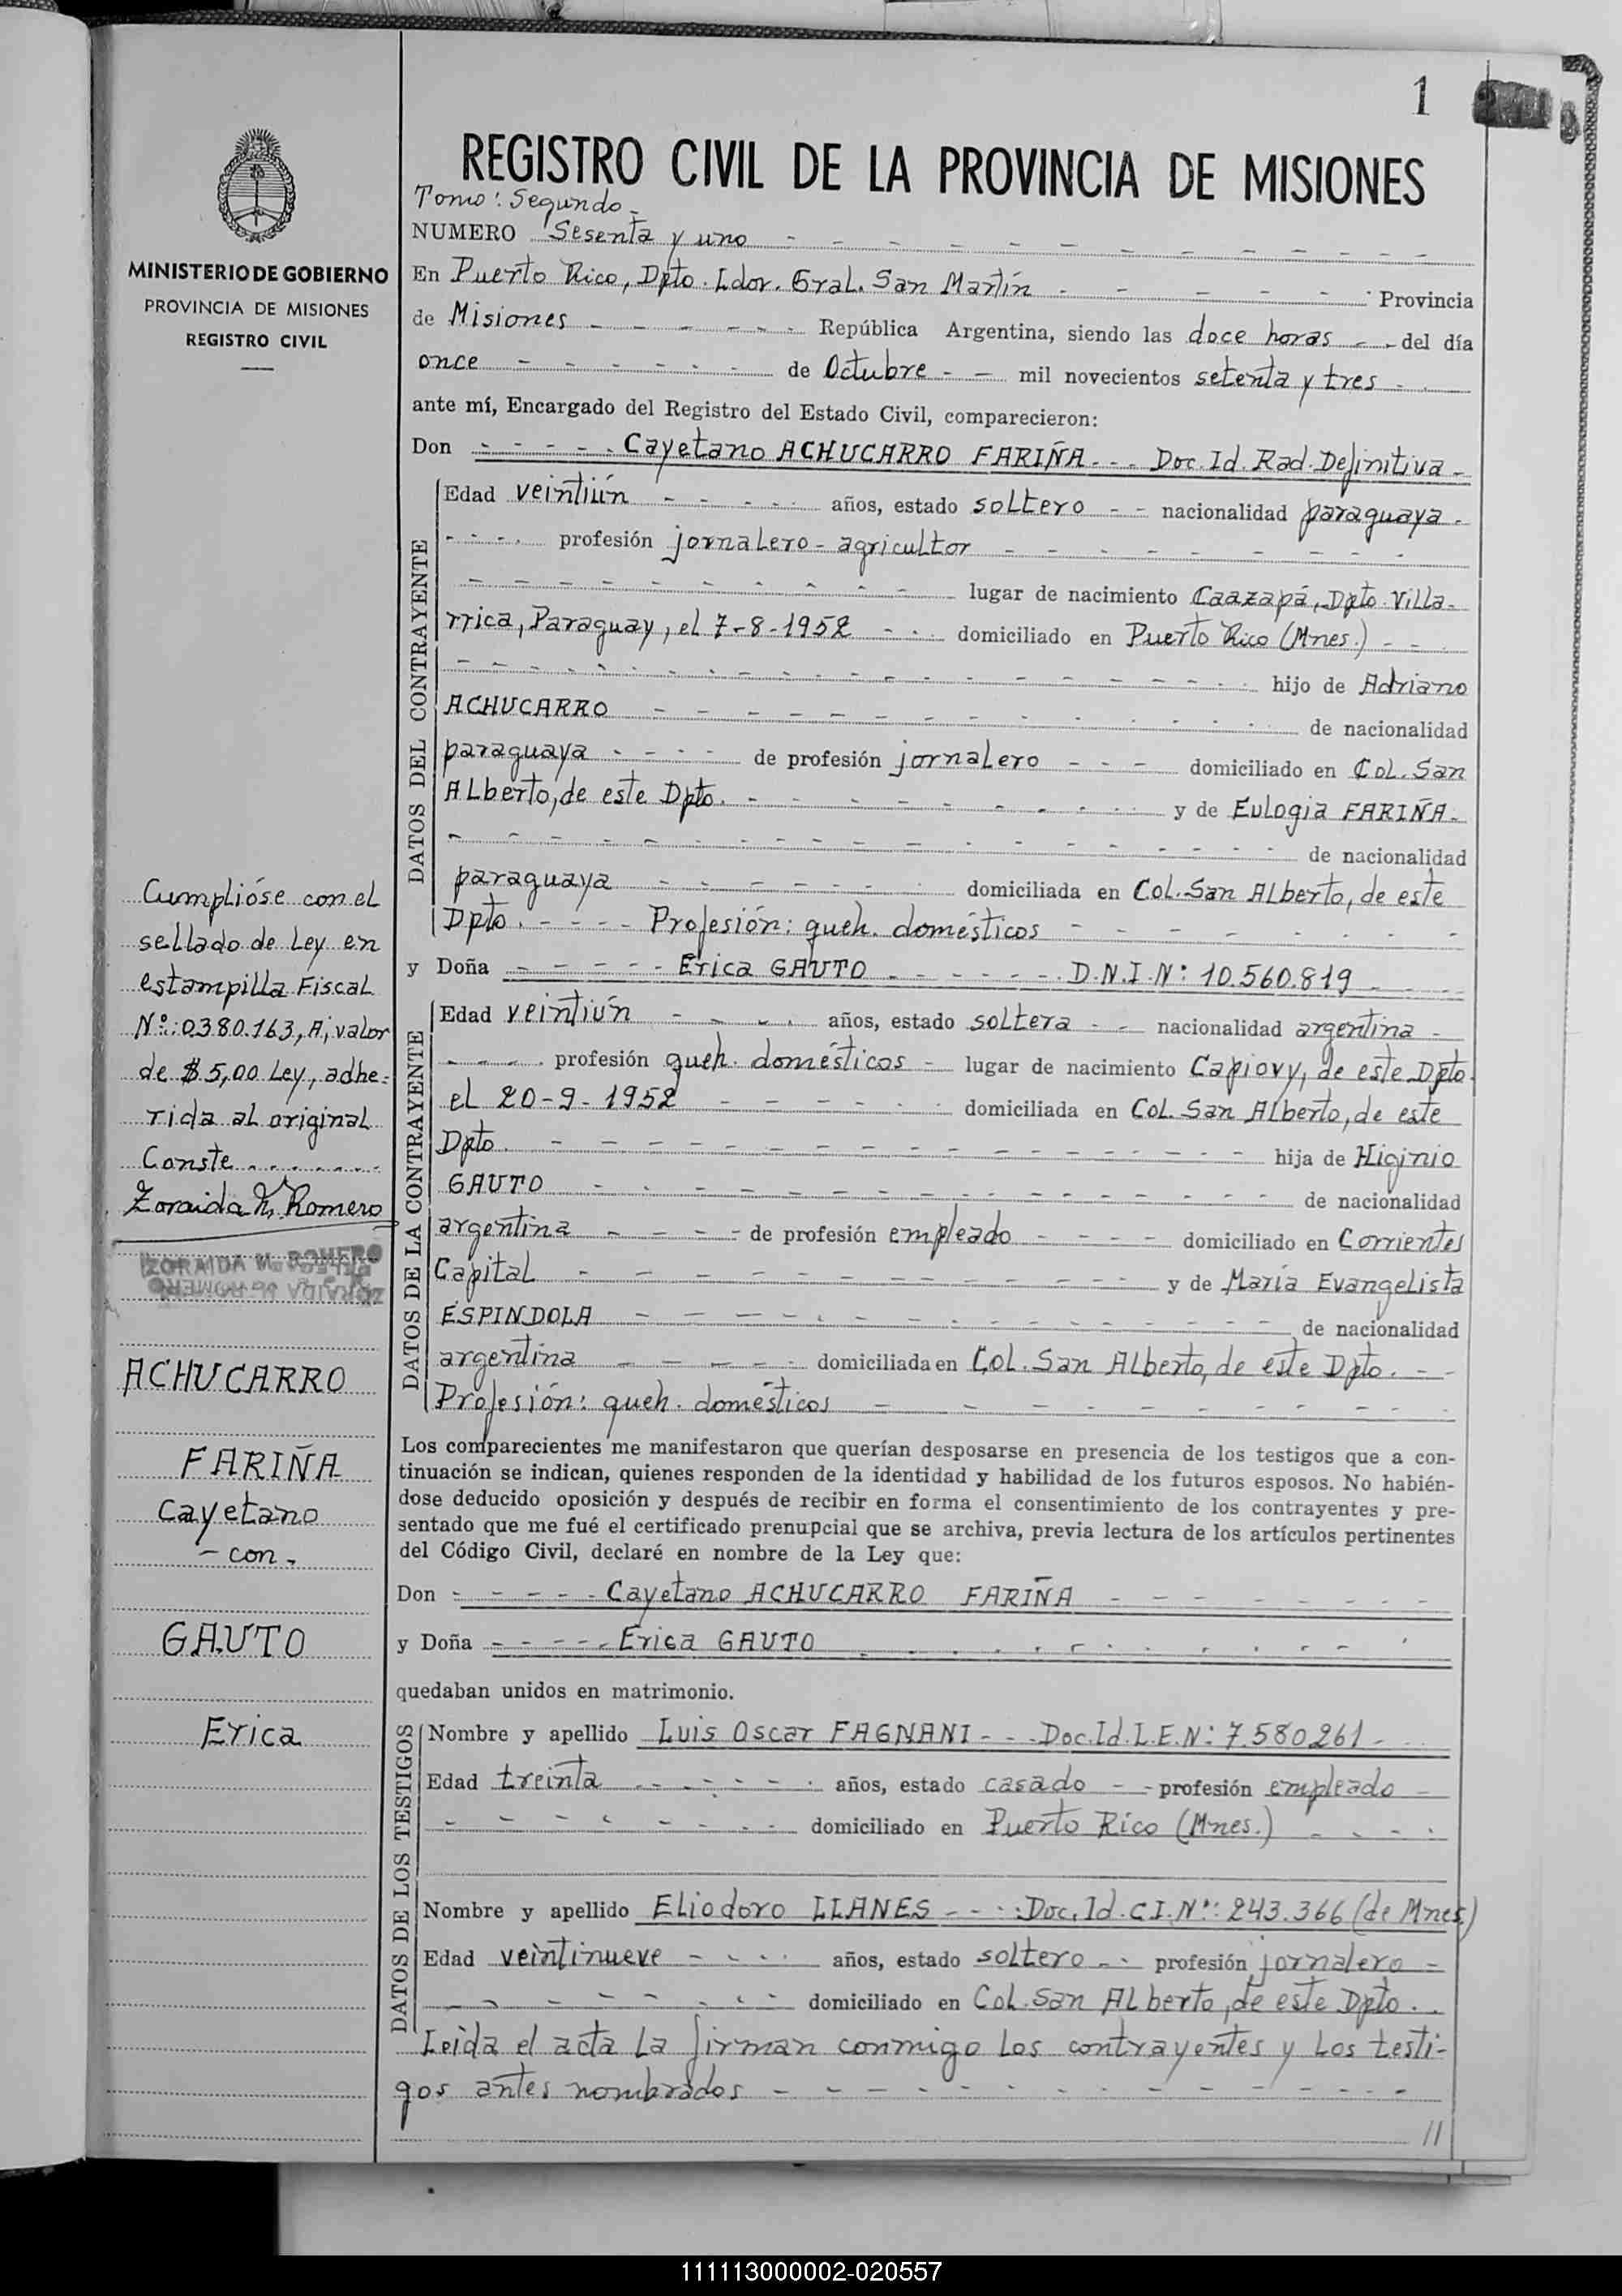 1
REGISTRO CIVIL DE LA PROVINCIA DE MISIONES
Tomo: Segundo -
NUMERO Sesenta y uno
En Puerto Rico, Dpto. Ldor. Gral. San Martín Provincia
de Misiones República Argentina, siendo las doce horas del día
once de Octubre mil novecientos setenta y tres
ante mí, Encargado del Registro del Estado Civil, comparecieron:
Don Cayetano ACHUCARRO FARIÑA - - Doc. Id. Rad. Definitiva -
DATOS DEL CONTRAYENTE
Edad veintiún años, estado soltero nacionalidad paraguaya
profesión jornalero - agricultor
lugar de nacimiento Caazapá, Dpto. Villa-
rrica, Paraguay, el 7-8-1952 domiciliado en Puerto Rico (Mnes.)
hijo de Adriano
ACHUCARRO de nacionalidad
paraguaya de profesión jornalero domiciliado en Col. San
Alberto, de este Dpto. y de Eulogia FARIÑA
de nacionalidad
paraguaya domiciliada en Col. San Alberto, de este
Dpto. Profesión: queh. domésticos
y Doña Erica GAUTO D.N.I. Nº 10.560.819
DATOS DE LA CONTRAYENTE
Edad veintiún años, estado soltera nacionalidad argentina
profesión queh. domésticos lugar de nacimiento Capiovy, de este Dpto.
el 20-9-1952 domiciliada en Col. San Alberto, de este
Dpto. hija de Higinio
GAUTO de nacionalidad
argentina de profesión empleado domiciliado en Corrientes
Capital y de María Evangelista
ESPINDOLA de nacionalidad
argentina domiciliada en Col. San Alberto, de este Dpto.
Profesión: queh. domésticos
Los comparecientes me manifestaron que querían desposarse en presencia de los testigos que a con-
tinuación se indican, quienes responden de la identidad y habilidad de los futuros esposos. No habién-
dose deducido oposición y después de recibir en forma el consentimiento de los contrayentes y pre-
sentado que me fué el certificado prenupcial que se archiva, previa lectura de los artículos pertinentes
del Código Civil, declaré en nombre de la Ley que:
Don Cayetano ACHUCARRO FARIÑA
y Doña Erica GAUTO
quedaban unidos en matrimonio.
DATOS DE LOS TESTIGOS
Nombre y apellido Luis Oscar FAGNANI - - Doc. Id. L.E. Nº 7.580261
Edad treinta años, estado casado profesión empleado
domiciliado en Puerto Rico (Mnes.)
Nombre y apellido Eliodoro LLANES Doc. Id. C.I. Nº: 243.366 (de Mnes.)
Edad veintinueve años, estado soltero profesión jornalero
domiciliado en Col. San Alberto, de este Dpto.
Leida el acta la firman conmigo los contrayentes y los testi-
gos antes nombrados
//
MINISTERIO DE GOBIERNO
PROVINCIA DE MISIONES
REGISTRO CIVIL
Cumplióse con el
sellado de Ley en
estampilla Fiscal
Nº: 0380.163, A, valor
de $ 5,00 Ley, adhe=
rida al original
Conste
Zoraida M. Romero
ZORAIDA M. ROMERO
ACHUCARRO
FARIÑA
Cayetano
- con -
GAUTO
Erica
111113000002-020557